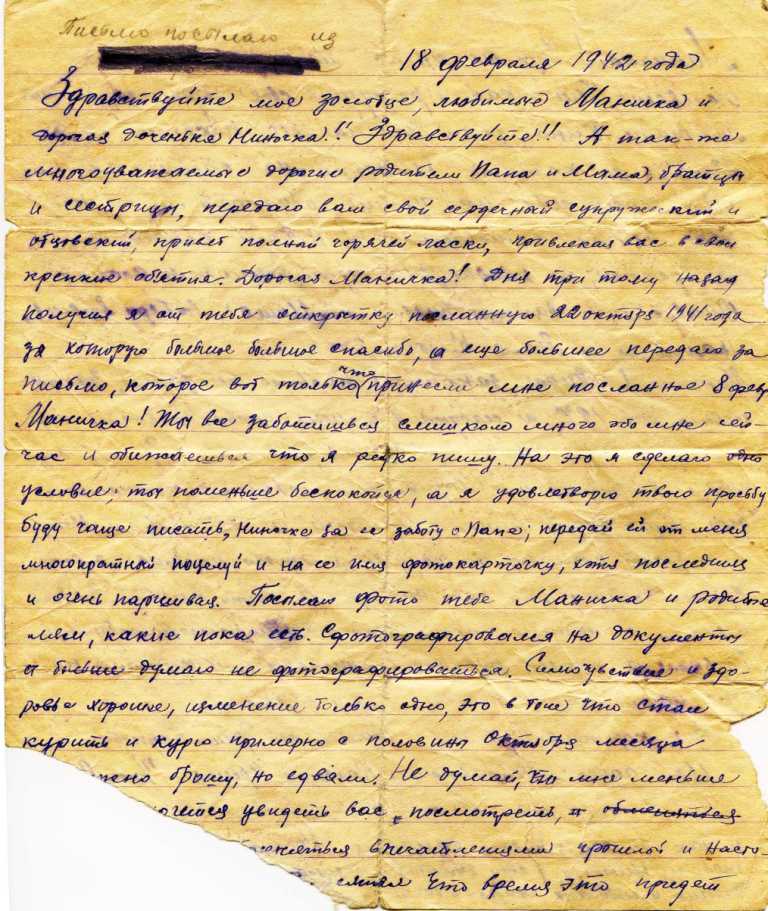 Письмо посылаю из
18 февраля 1942 года
Здравствуйте мое золотце, любимые Маничка и
дорогая доченька Ниночка!! Здравствуйте!! А так-же
многоуважаемые дорогие родители Папа и Мама, братцы
и сестрицы, передаю вам свой сердечный супружеский и
отцовский, привет полный горячей ласки, привлекая вас в свои
крепкие обятия. Дорогая Маничка! Дня три тому назад
получил я от тебя открытку посланную 22 октября 1941 года
за которую большое большое спасибо, а еще большее передаю за
письмо, которое вот только что принесли мне посланное 8 февр
Маничка! Ты все заботишься слишком много обо мне сей-
час и обижаешься что я редко пишу. На это я сделаю одно
условие; ты поменьше беспокойся, а я удовлетворю твою просьбу
буду чаще писать, Ниночке за ее заботу о Папе; передай ей от меня
многократный поцелуй и на ее имя фотокарточку, хотя последняя
и очень паршивая. Посылаю фото тебе Маничка и родите
лям, какие пока есть. Сфотографировался на документы
и больше думаю не фотографироваться. Самочувствие и здо-
ровье хорошие, изменение только одно, это в том что стал
курить и курю примерно с половины Октября месяца
брошу, но едвали. Не думай, что мне меньше
хочется увидеть вас, посмотреть, и обменяться
впечатлениями прошлой и насто-
что время это придет